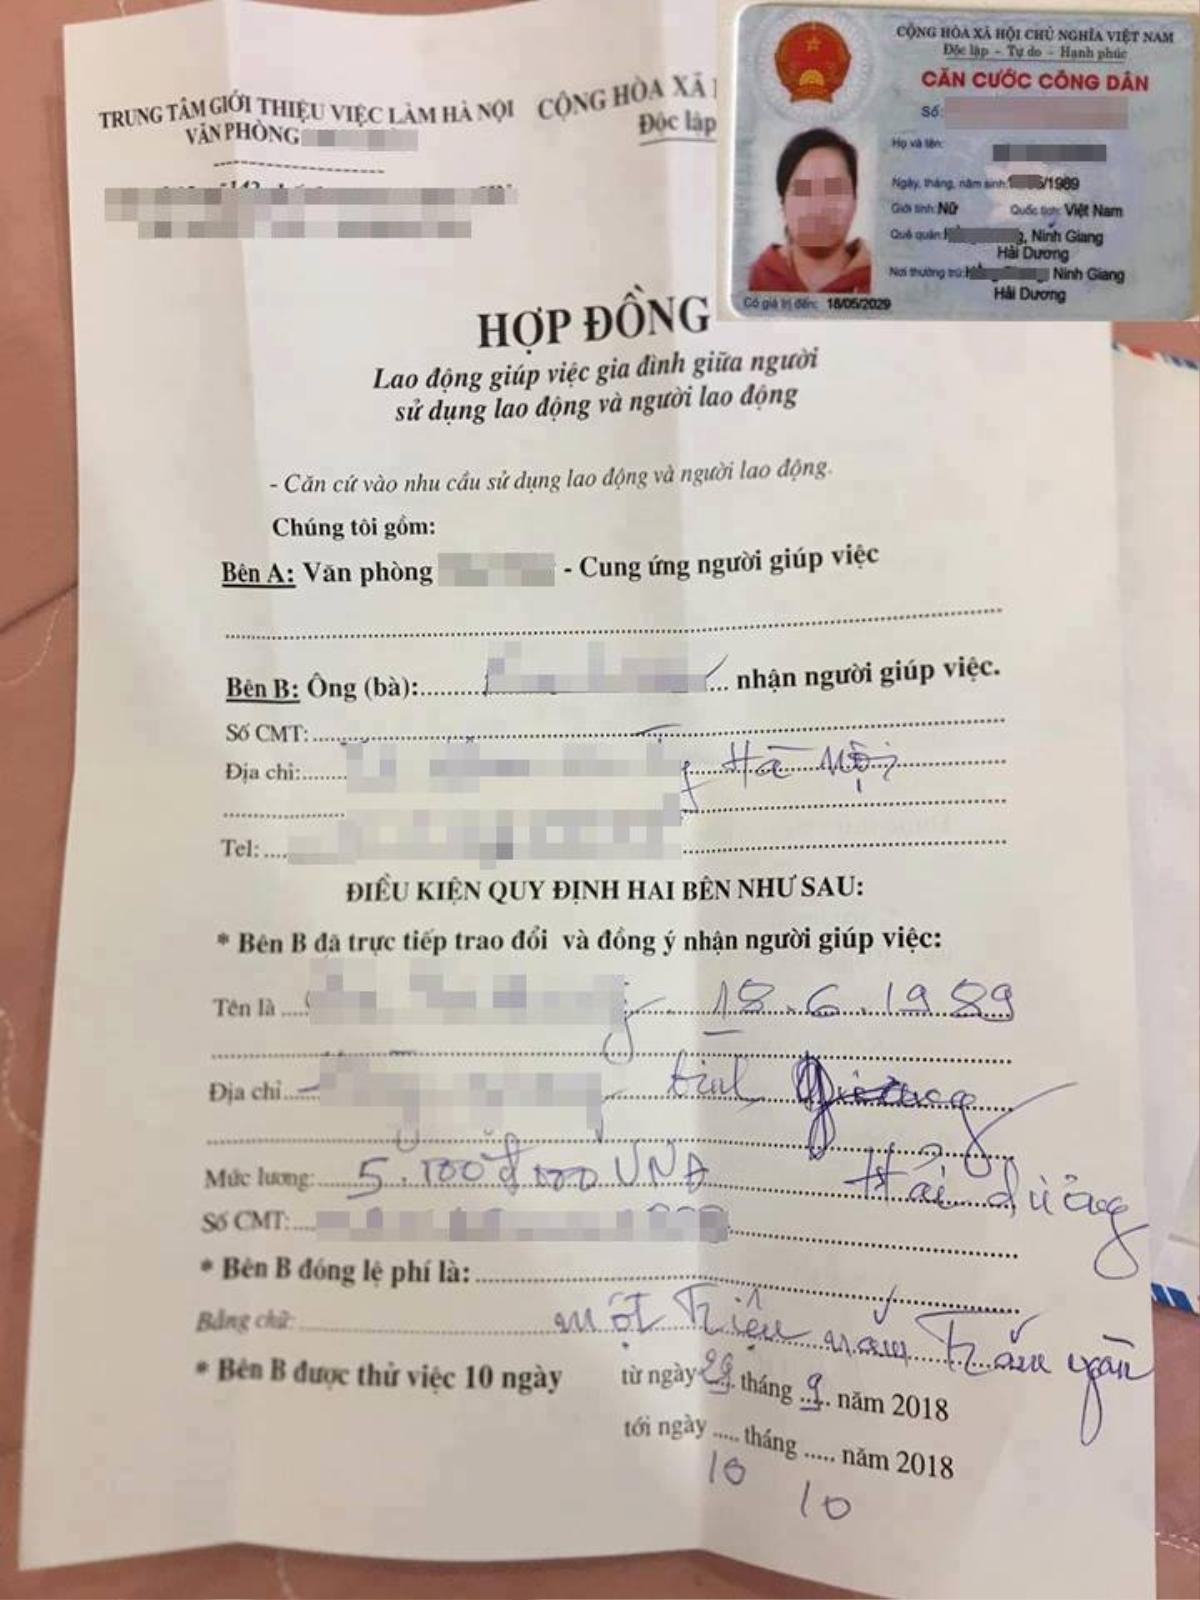 TRUNG TÂM GIỚI THIỆU VIỆC LÀM HÀ NỘI
VĂN PHÒNG
CỘNG HÒA XÃ
Độc lập
CỘNG HÒA XÃ HỘI CHỦ NGHĨA VIỆT NAM
Độc lập - Tự do - Hạnh phúc
CĂN CƯỚC CÔNG DÂN
Số:
Họ và tên:
Ngày, tháng, năm sinh: /1989
Giới tính: Nữ Quốc tịch: Việt Nam
Quê quán: , Ninh Giang
Hải Dương
Nơi thường trú: Ninh Giang
Hải Dương
Có giá trị đến: 18/05/2029
HỢP ĐỒNG
Lao động giúp việc gia đình giữa người
sử dụng lao động và người lao động
- Căn cứ vào nhu cầu sử dụng lao động và người lao động.
Chúng tôi gồm:
Bên A: Văn phòng - Cung ứng người giúp việc
Bên B: Ông (bà): nhận người giúp việc.
Số CMT:
Địa chỉ: Hà Nội
Tel:
ĐIỀU KIỆN QUY ĐỊNH HAI BÊN NHƯ SAU:
* Bên B đã trực tiếp trao đổi và đồng ý nhận người giúp việc:
Tên là 18.6.1989
Địa chỉ
Hải dương
Mức lương: VNĐ
Số CMT:
* Bên B đóng lệ phí là:
Bằng chữ: một Triệu năm Trăm
* Bên B được thử việc 10 ngày từ ngày 29 tháng 9 năm 2018
tới ngày ..... tháng ..... năm 2018
10 10